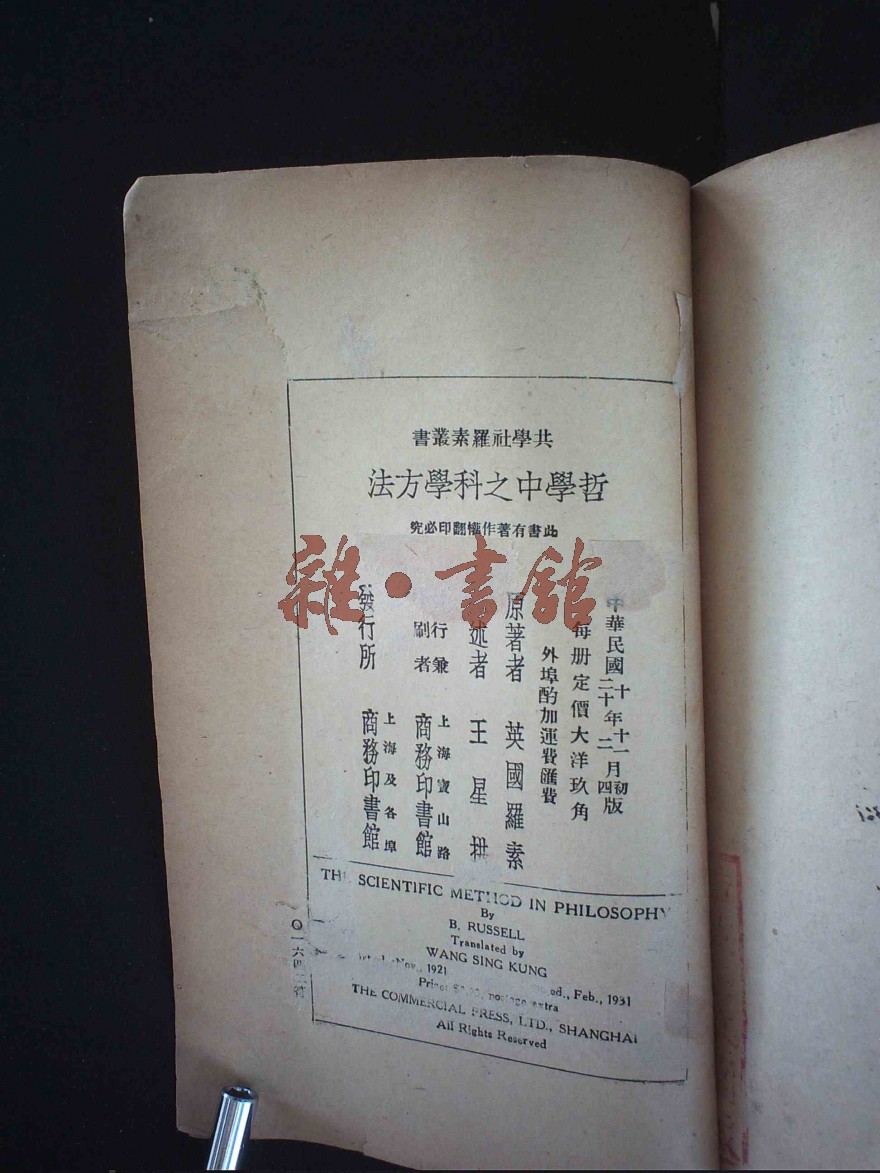 共學社羅素叢書
哲學中之科學方法
此書有著作權翻印必究
中華民國十年十一月初版
二十年二月四版
每册定價大洋玖角
外埠酌加運費匯費
原著者 英國羅素
述者 王星拱
行兼
刷者
上海寶山路
商務印書館
發行所
上海及各埠
商務印書館
雜·書館
THE SCIENTIFIC METHOD IN PHILOSOPHY
By
B. RUSSELL
Translated by
WANG SING KUNG
Nov., 1921
ed., Feb., 1931
Price: postage extra
THE COMMERCIAL PRESS, LTD., SHANGHAI
All Rights Reserved
〇一六四二